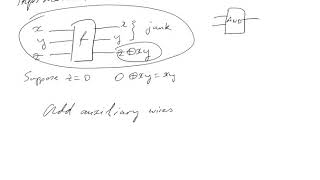 x x
y R y } junk
z z ⊕ xy
AND
Suppose z=0 0 ⊕ xy = xy
Add auxiliary wires